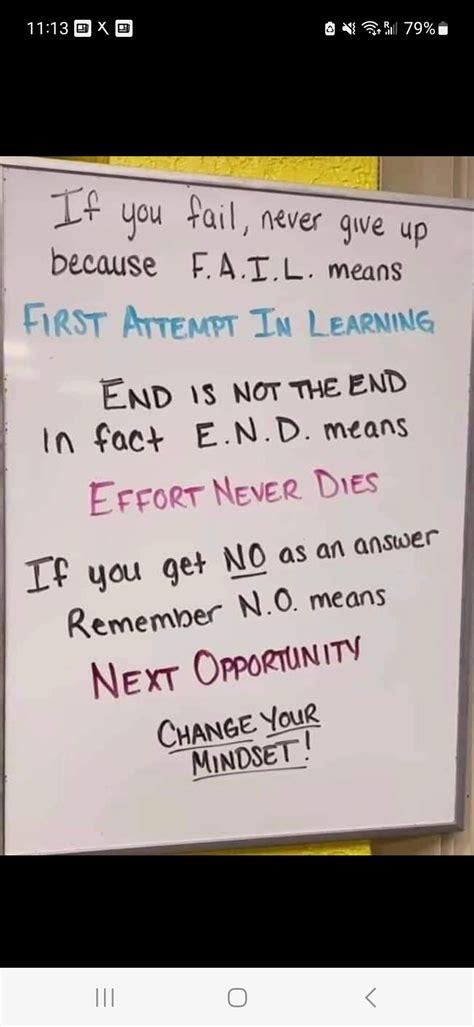 11:13 X 79%
If you fail, never give up
because F.A.I.L. means
FIRST ATTEMPT IN LEARNING
END IS NOT THE END
In fact E.N.D. means
EFFORT NEVER DIES
If you get NO as an answer
Remember N.O. means
NEXT OPPORTUNITY
CHANGE YOUR
MINDSET!